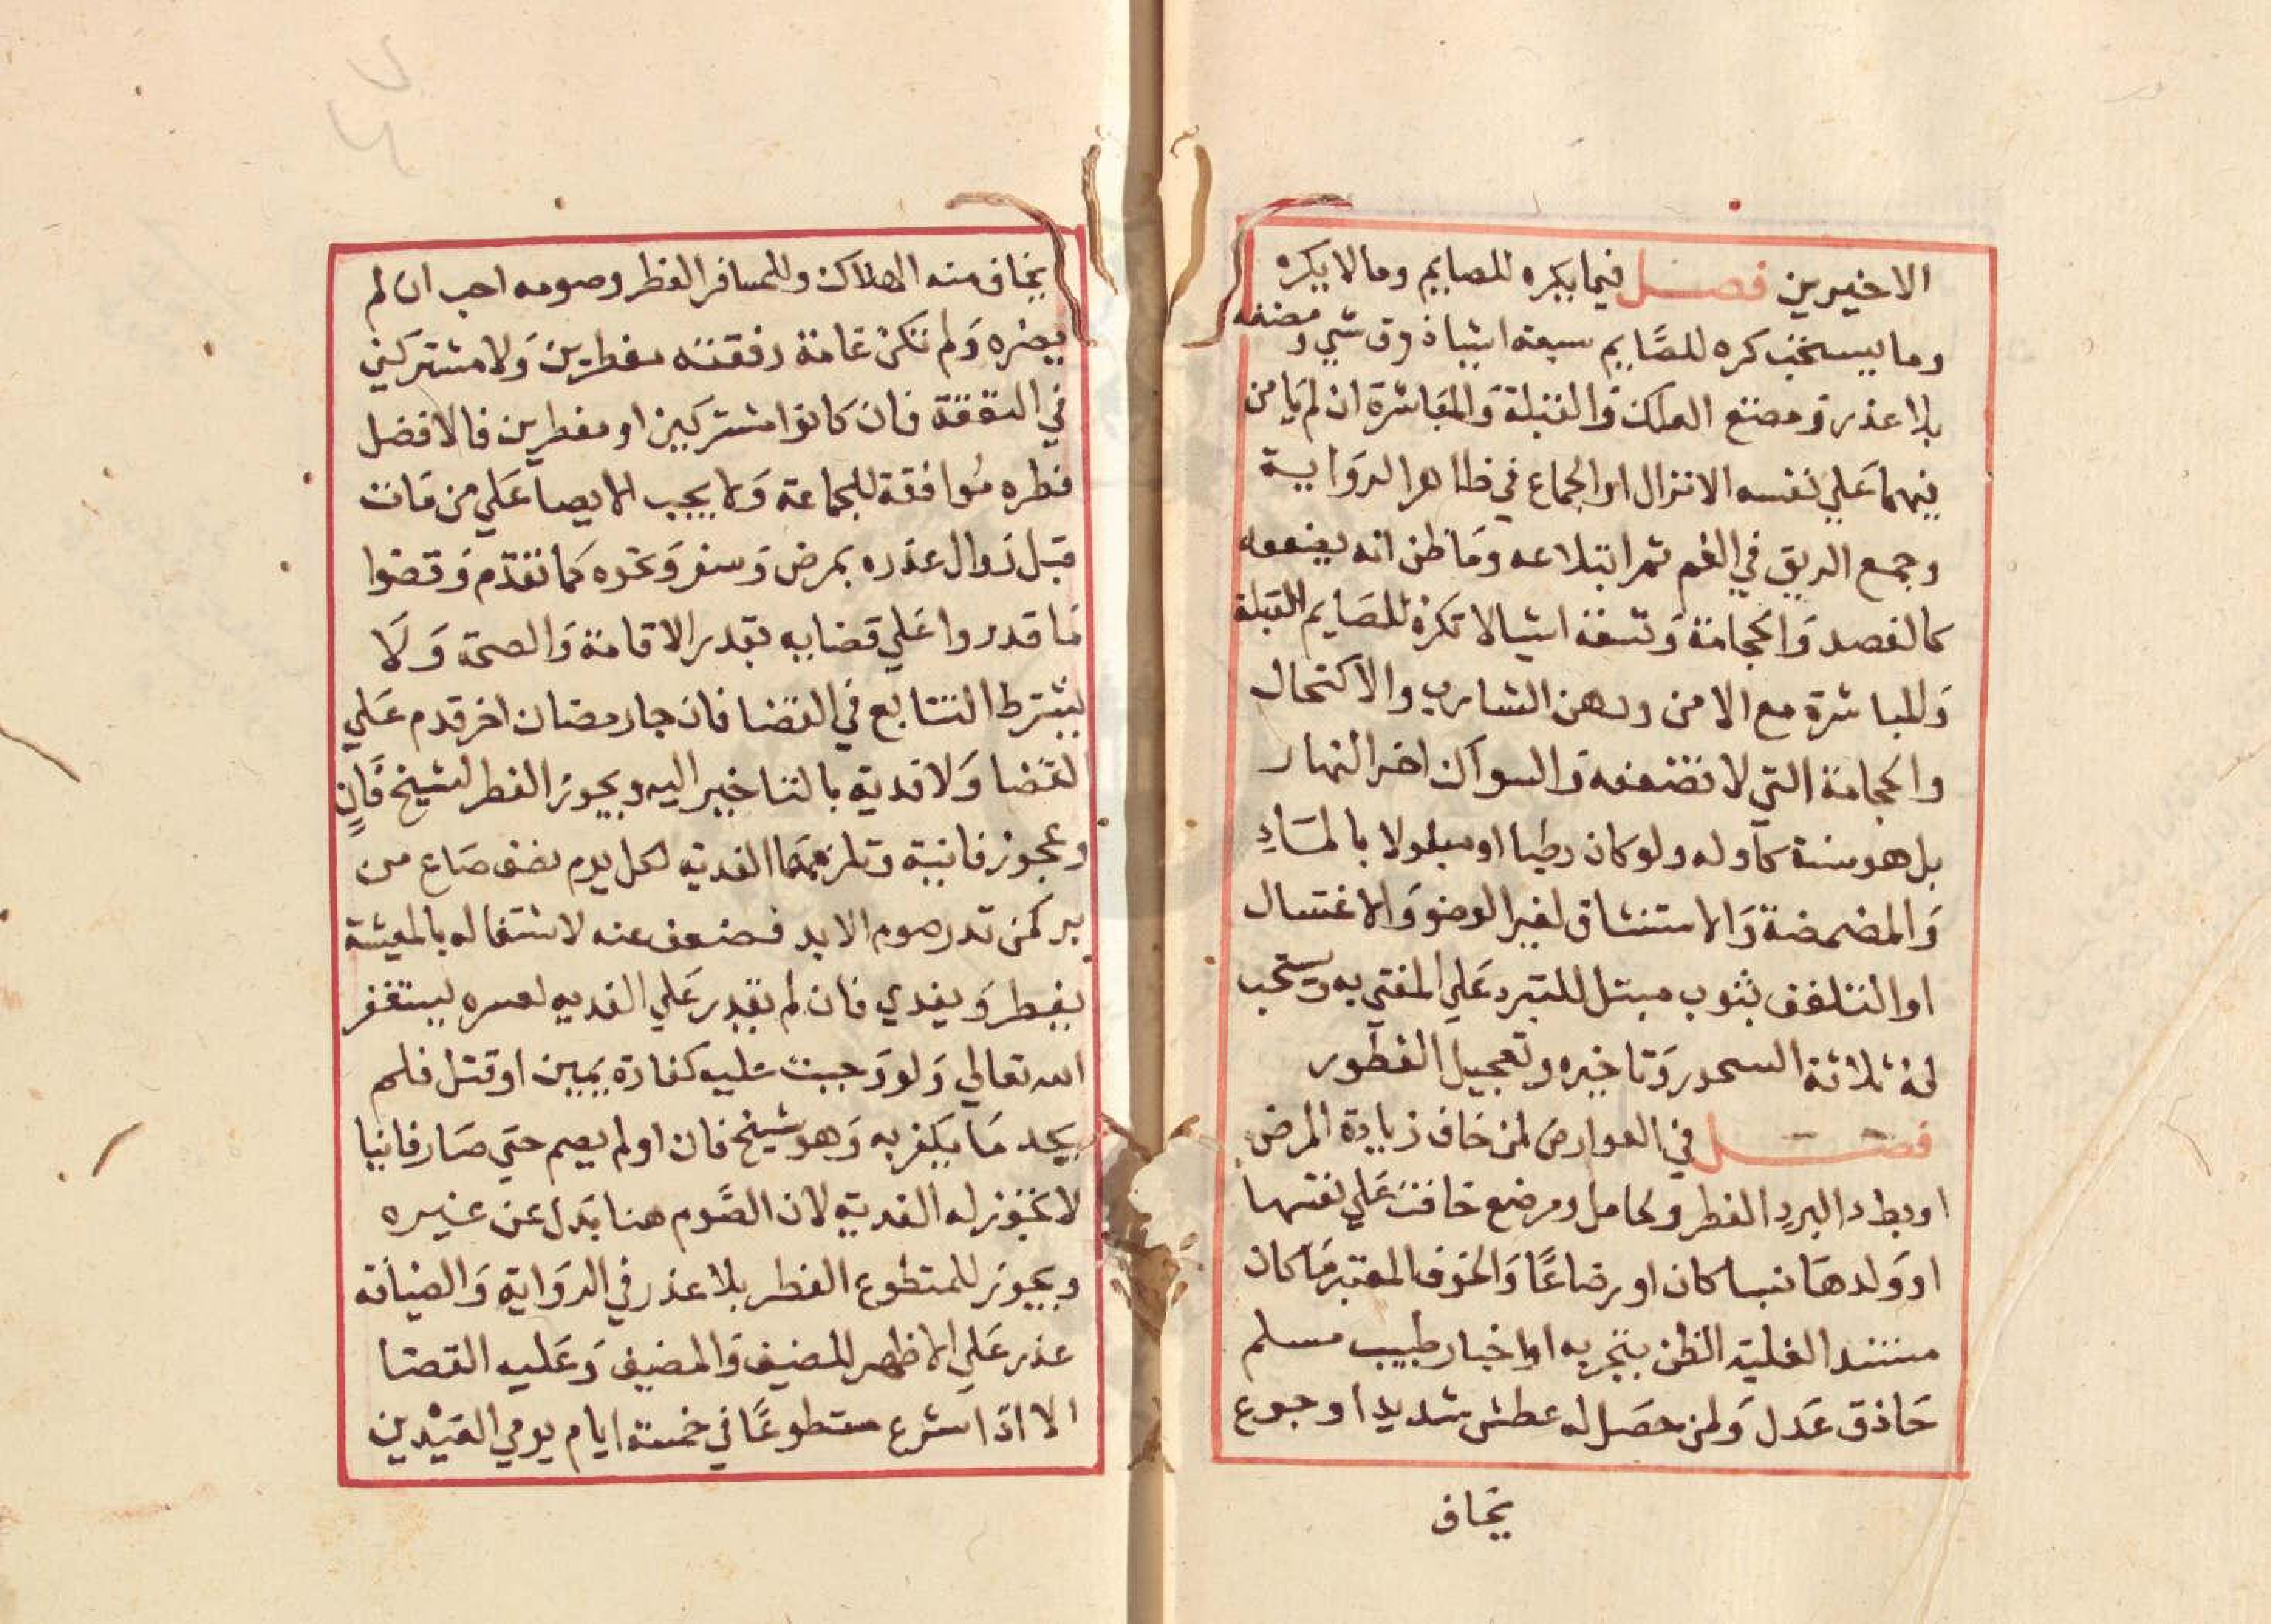 الاخيرين فصل فيما يكره للصايم وما لا يكره
وما يستحب كره للصَّايم سبعة اشيا ذوق شي ومضغه
بلا عذر وَ مضغ العلك وَالقبلة وَالمباشرة ان لم يَامن
فيهما عَلي نفسه الانزال او الجماع في ظاهر الروَاية
وجمع الريق في الفم ثم ابتلاعه وَمَا ظن انه يضعفه
كالفصد وَالحجامة وَ تسعة اشيا لا تكره للصَايم القبلة
وَالمباشرة مع الامن ودهن الشارب والاكتحال
والحجامة التي لا تضعفه وَالسواك اخر النهار
بل هو سنة كاوله ولو كان رطبا او مبلولا بالمَاءِ
وَالمضمضة وَالاستنشاق لغير الوضو وَالاغتسال
او التلفف بثوب مبتل للتبرد عَلي المفتي به ويستحب
له ثلاثة السحور وَتاخيره وتعجيل الفطور
فصل في العوارض لمن خاف زيادة المرض
او بطء البرءِ الفطر ولحامل ومرضع خافت عَلي نفسها
او وَلدهَا نسبا كان او رضاعًا وَالخوف المعتبر مَا كان
مستندا لغلبة الظن بتجربه او اخبار طبيب مسلم
حَاذق عَدل وَلمن حصَل له عطش شديد او جوع
يخاف
يخاف منه الهلاك وللمسافر الفطر وصومه احب ان لم
يضره وَلم تكن عَامة رفقته مفطرين وَلا مشتركين
في النفقة فان كانوا مشتركين او مفطرين فالافضل
فطره مُوافقة للجماعة وَلا يجب الايصا عَلي من مَات
قبل زوال عذره بمرض وَ سفر وَنحوه كما تقدّم وَقضوا
مَا قدروا عَلي قضايه بقدر الاقامة وَالصحة وَلَا
يشترط التتابع في القضا فان جا رمضان اخر قدم عَلي
القضا وَلا فدية بالتاخير اليه ويجوز الفطر لشيخ فَانٍ
وعجوز فانية وتلزمهمَا الفدية لكل يوم نصف صَاع من
بر كمن نذر صوم الابد فضعف عنه لاشتغاله بالمعيشة
يفطر وَ يفدي فان لم يقدر عَلي الفديه لعسره يستغفر
الله تعالي وَلو وَجبت عليه كفارة يمين او قتل فلم
يجد مَا يكفر به وَهو شيخ فان او لم يصم حتي صَار فانيا
لا تجوز له الفدية لان الصَّوم هنا بَدل عن غيره
ويجوز للمتطوع الفطر بلا عذر في الروَاية وَالضيافة
عذر عَلي الاظهر للضيف وَالمضيف وَعَليه القضا
الا اذا شرع متطوعًا في خمسة ايام يومي العيْدين